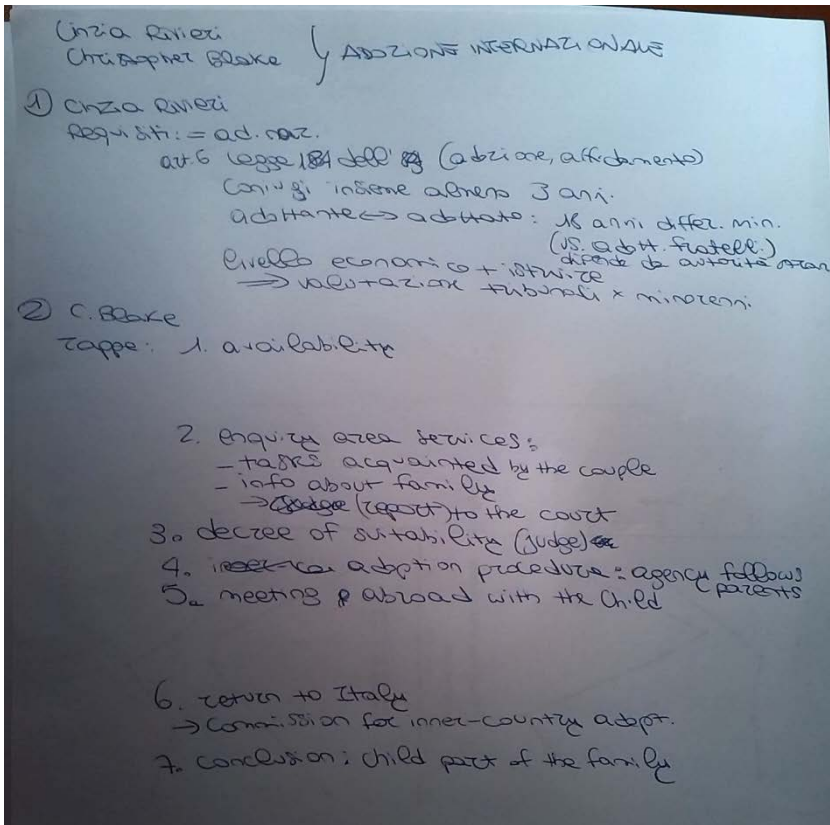 Cinzia Rivieri
Christopher Blake
ADOZIONE INTERNAZIONALE
① Cinzia Rivieri
Requisiti: = ad. naz.
art. 6 Legge 184 dell' (adozione, affidamento)
Coniugi insieme almeno 3 anni.
adottante <-> adottato: 18 anni differ. min.
(vs. adott. fratelli.)
dipende da autorità stran
livello economico + istruize
=> valutazione tribunali x minorenni.
② C. Blake
Tappe: 1. availability
2. enquiry area services:
- tasks acquainted by the couple
- info about family
-> (report) to the court
3. decree of suitability (judge)
4. adoption procedure: agency follows
parents
5. meeting abroad with the child
6. return to Italy
-> Commission for inner-country adopt.
7. conclusion: child part of the family